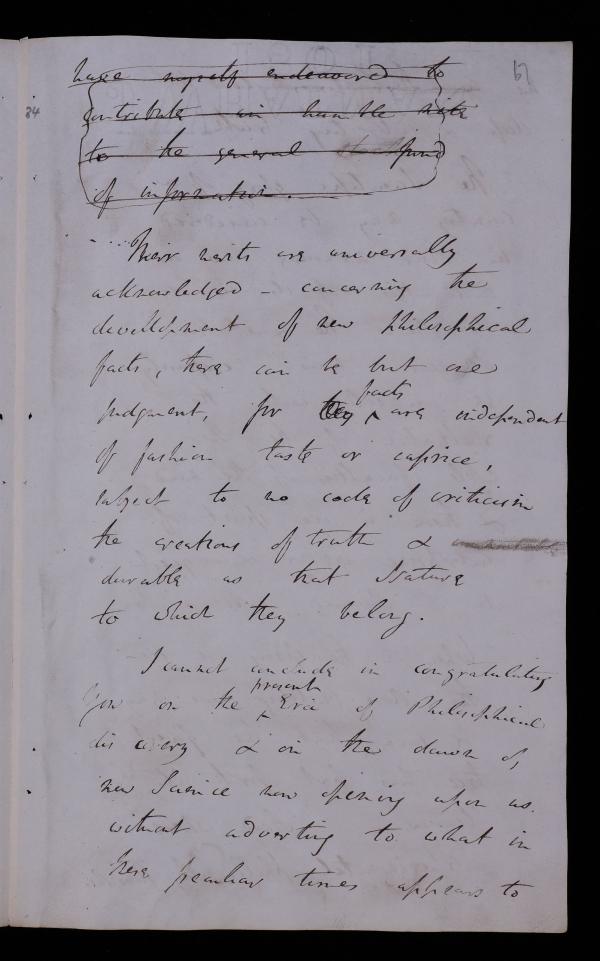 67
34
have myself endeavored to
contribute an humble note
to the general fund
of information.
Their merits are universally
acknowledged - concerning the
development of new philosophical
facts, there can be but one
facts
judgment, for they ^ are independent
of fashion taste or caprice,
subject to no code of criticism
the creations of truth &
durable as that Nature
to which they belong.
I cannot conclude in congratulating
present
you on the ^ Era of Philosophical
discovery & on the dawn of
new Science now opening upon us
without adverting to what in
these peculiar times appears to